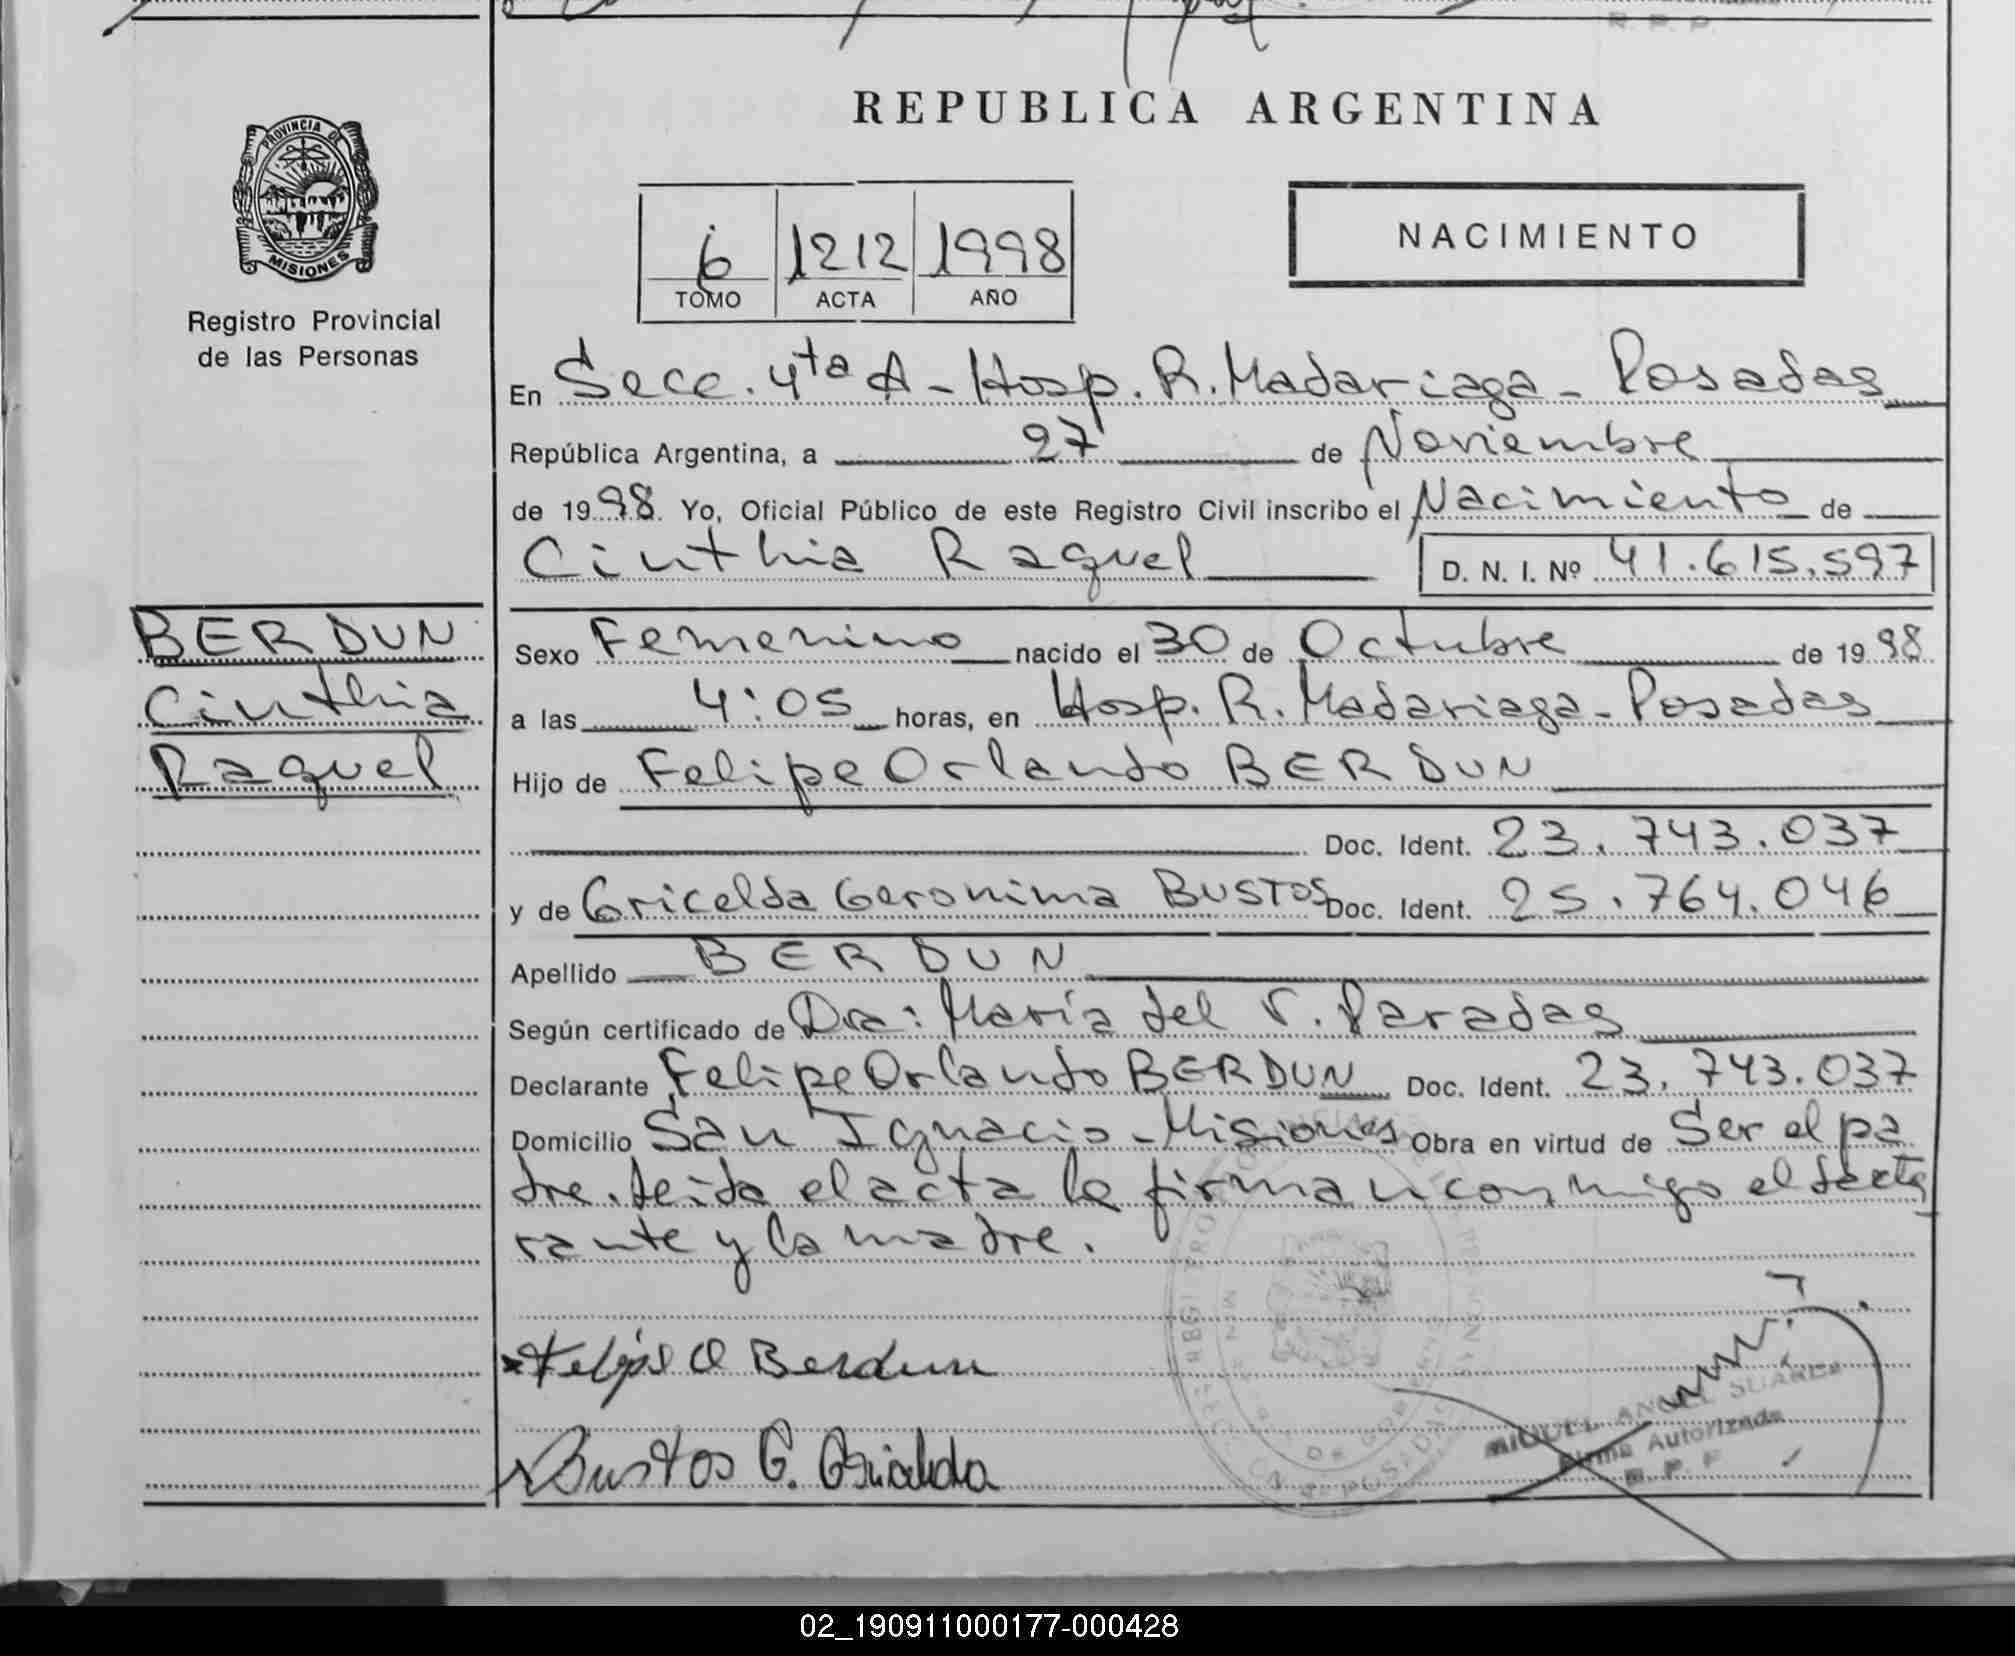 R. P. P.
REPUBLICA ARGENTINA
PROVINCIA DE
MISIONES
Registro Provincial
de las Personas
6 1212 1998
TOMO ACTA AÑO
NACIMIENTO
En Secc. 4ta A - Hosp. R. Madariaga - Posadas
República Argentina, a 27 de Noviembre
de 1998. Yo, Oficial Público de este Registro Civil inscribo el Nacimiento de
Cinthia Raquel D. N. I. Nº 41.615.597
BERDUN
Cinthia
Raquel
Sexo Femenino nacido el 30 de Octubre de 1998.
a las 4:05 horas, en Hosp. R. Madariaga - Posadas
Hijo de Felipe Orlando BERDUN
Doc. Ident. 23.743.037
y de Gricelda Geronima BUSTOS Doc. Ident. 25.764.046
Apellido BERDUN
Según certificado de Dra: María del V. Paradas
Declarante Felipe Orlando BERDUN Doc. Ident. 23.743.037
Domicilio San Ignacio - Misiones Obra en virtud de Ser el pa
dre. Leida el acta la firman conmigo el decla
rante y la madre.
Felipe O Berdun
Bustos G. Gricelda
MIGUEL ANGEL SUAREZ
Firma Autorizada
R. P. P.
02_190911000177-000428